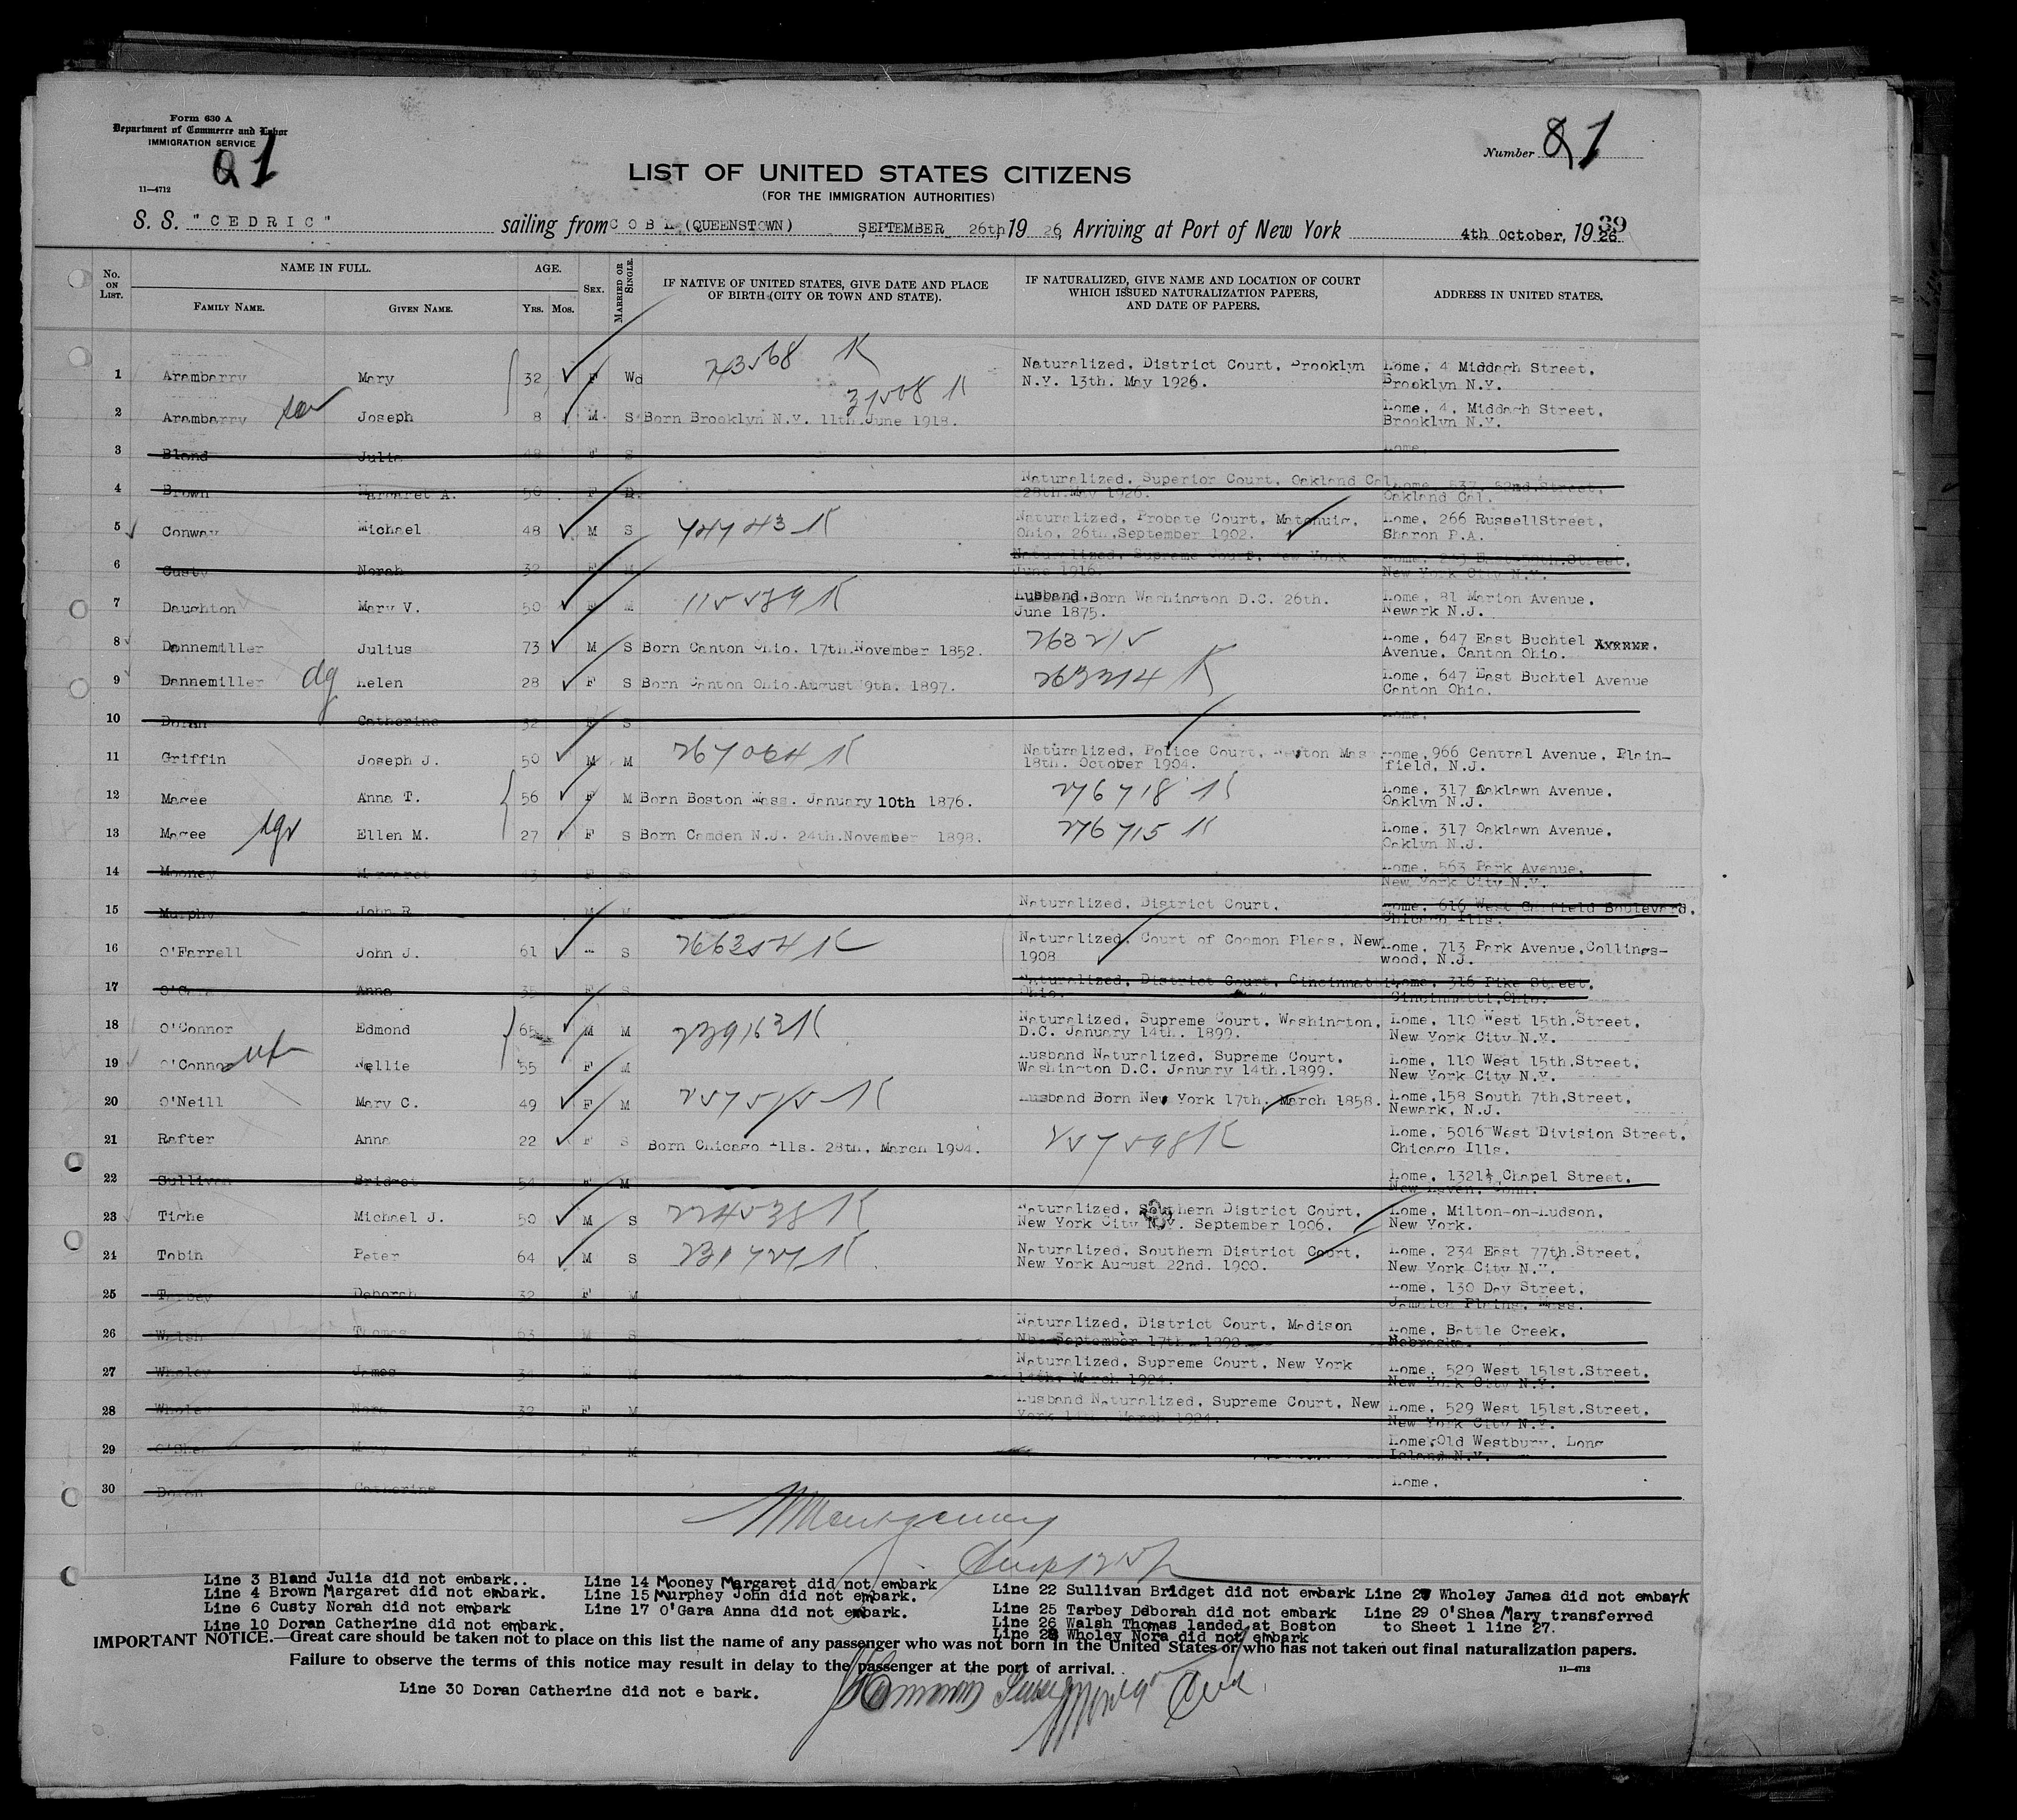 Form 630 A
Department of Commerce and Labor
IMMIGRATION SERVICE
11—4712
Number
LIST OF UNITED STATES CITIZENS
(FOR THE IMMIGRATION AUTHORITIES)
S. S. "CEDRIC" sailing from COBH (QUEENSTOWN) SEPTEMBER 26th, 19 26, Arriving at Port of New York 4th October, 19 26
39
No. ON LIST.
NAME IN FULL.
FAMILY NAME.
GIVEN NAME.
AGE.
YRS. MOS.
SEX.
MARRIED OR SINGLE.
IF NATIVE OF UNITED STATES, GIVE DATE AND PLACE
OF BIRTH (CITY OR TOWN AND STATE).
IF NATURALIZED, GIVE NAME AND LOCATION OF COURT
WHICH ISSUED NATURALIZATION PAPERS,
AND DATE OF PAPERS.
ADDRESS IN UNITED STATES.
1 Arambarry Mary 32 F Wd Naturalized, District Court, Brooklyn Home, 4 Middagh Street,
N.Y. 13th. May 1926. Brooklyn N.Y.
2 Arambarry son Joseph 8 M S Born Brooklyn N.Y. 11th.June 1918. Home, 4, Middagh Street,
Brooklyn N.Y.
3 Bland Julia 48 F S Home,
4 Brown Margaret A. 50 F D. Naturalized, Superior Court, Oakland Cal. Home, 537, 52nd.Street,
28th.May 1926. Oakland Cal.
5 Conway Michael 48 M S Naturalized, Probate Court, Home, 266 RussellStreet,
Ohio, 26th.September 1902. Sharon P.A.
6 Custy Norah 32 F M Naturalized, Supreme Court, New York Home, East 50th.Street,
June 1916. New York City N.Y.
7 Daughton Mary V. 50 F M Husband.Born Washington D.C. 26th. Home, 81 Marion Avenue,
June 1875. Newark N.J.
8 Dannemiller Julius 73 M S Born Canton Ohio. 17th.November 1852. Home, 647 East Buchtel
Avenue, Canton Ohio.
9 Dannemiller dg Helen 28 F S Born Canton Ohio.August 9th. 1897. Home, 647 East Buchtel Avenue
Canton Ohio.
10 Doran Catherine 32 F S Home,
11 Griffin Joseph J. 50 M M 267064 K Naturalized, Police Court, Newton Mas Home,966 Central Avenue, Plain-
18th. October 1904. field, N.J.
12 Magee Anna T. 56 F M Born Boston Mass. January 10th 1876. 276718 K Home, 317 Oaklawn Avenue,
Oaklyn N.J.
13 Magee Ellen M. 27 F S Born Camden N.J. 24th.November 1898. 276715 K Home, 317 Oaklawn Avenue,
Oaklyn N.J.
14 Mooney Margaret 43 F S Home, 563 Park Avenue,
New York City N.Y.
15 Murphy John R M M Naturalized, District Court, Home, 616 West Garfield Boulevard,
Chicago Ills.
16 O'Farrell John J. 61 S 266354 K Naturalized, Court of Common Pleas, New Home, 713 Park Avenue,Collings-
1908 wood, N.J.
17 O'Gara Anna 35 F S Naturalized, District Court, Cincinnati Home, 316 Pike Street,
Ohio. Cincinnatti,Ohio.
18 O'Connor Edmond 65 M M 239163 K Naturalized, Supreme Court, Washington, Home, 110 West 15th.Street,
D.C. January 14th. 1899. New York City N.Y.
19 O'Connor Nellie 55 F M Husband Naturalized, Supreme Court, Home, 110 West 15th.Street,
Washington D.C. January 14th.1899. New York City N.Y.
20 O'Neill Mary C. 49 F M Husband Born New York 17th. March 1858. Home,158 South 7th.Street,
Newark, N.J.
21 Rafter Anna 22 F S Born Chicago Ills. 28th. March 1904. 257598 K Home, 5016 West Division Street,
Chicago Ills.
22 Sullivan Bridget 54 F M Home, 1321½ Chapel Street,
New Haven, Conn.
23 Tighe Michael J. 50 M S 224538 K Naturalized, Southern District Court, Home, Milton-on-Hudson,
New York City N.Y. September 1906. New York.
24 Tobin Peter 64 M S 231727 K Naturalized, Southern District Court, Home, 234 East 77th.Street,
New York August 22nd. 1900. New York City N.Y.
25 Tarbey Deborah 32 F M Home, 130 Day Street,
Jamaica Plains, Mass.
26 Walsh Thomas 63 M S Naturalized, District Court, Madison Home, Battle Creek,
September 17th. 1892. Nebraska.
27 Wholey James 34 M M Naturalized, Supreme Court, New York Home, 529 West 151st.Street,
14th. March 1924. New York City N.Y.
28 Wholey Nora 32 F M Husband Naturalized, Supreme Court, New Home, 529 West 151st.Street,
York 14th. March 1924. New York City N.Y.
29 O'Shea Mary F M Home,Old Westbury, Long
Island N.Y.
30 Doran Catherine Home,
Line 3 Bland Julia did not embark..
Line 4 Brown Margaret did not embark.
Line 6 Custy Norah did not embark
Line 10 Doran Catherine did not embark.
Line 14 Mooney Margaret did not embark
Line 15 Murphey John did not embark.
Line 17 O'Gara Anna did not embark.
Line 22 Sullivan Bridget did not embark
Line 25 Tarbey Deborah did not embark
Line 26 Walsh Thomas landed at Boston
Line 28 Wholey Nora did not embark
Line 27 Wholey James did not embark
Line 29 O'Shea Mary transferred
to Sheet 1 line 27.
IMPORTANT NOTICE.—Great care should be taken not to place on this list the name of any passenger who was not born in the United States or who has not taken out final naturalization papers.
Failure to observe the terms of this notice may result in delay to the passenger at the port of arrival.
11—4712
Line 30 Doran Catherine did not e bark.